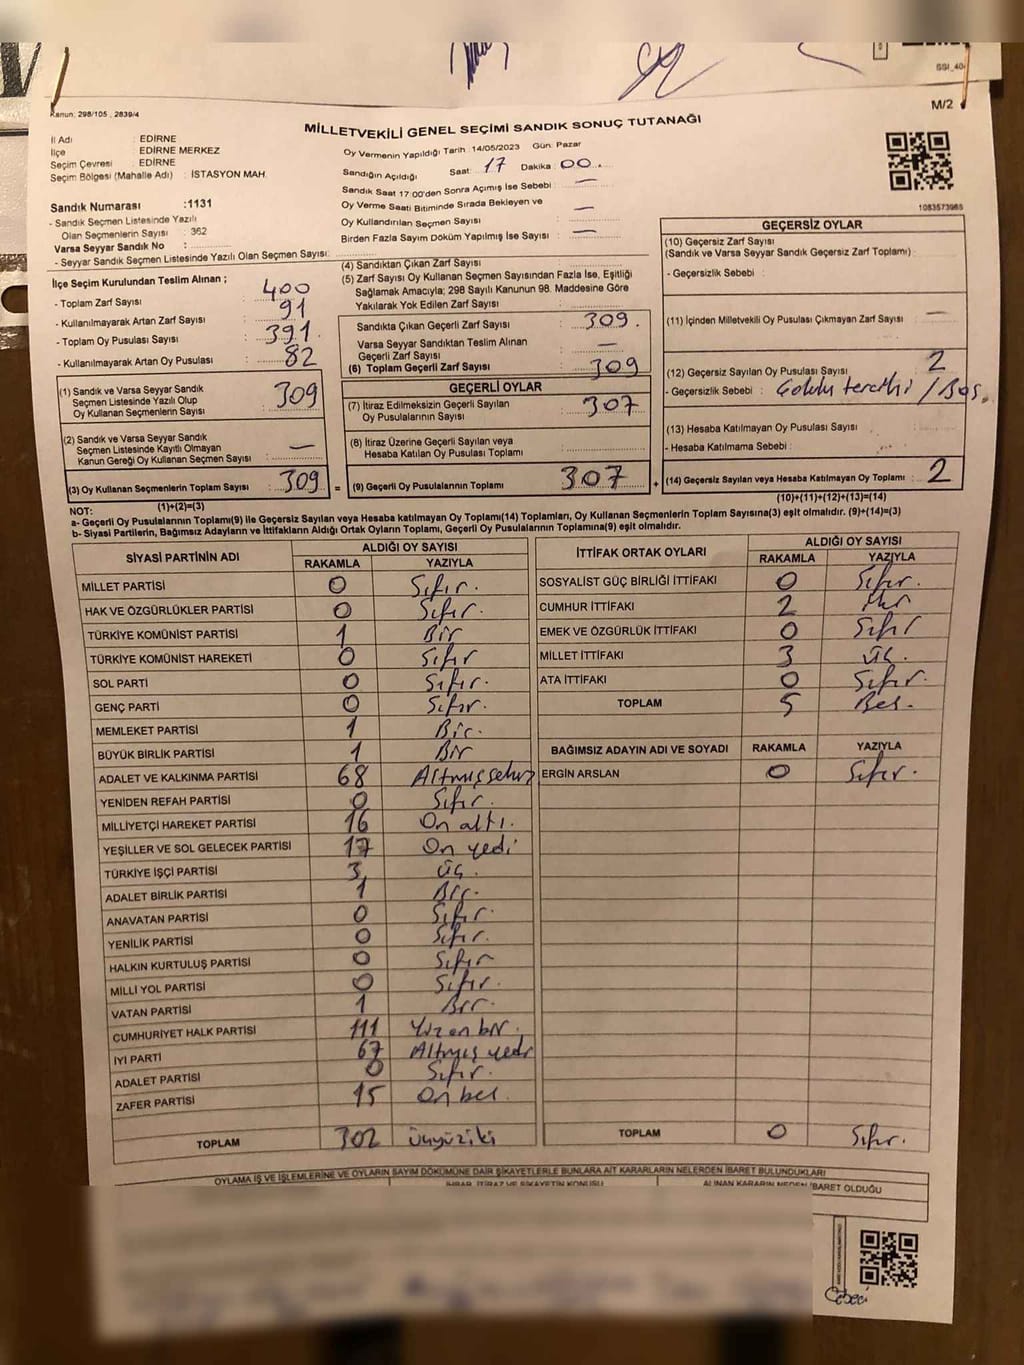 SSI_40
Kanun: 298/105 , 2839/4
M/2
MİLLETVEKİLİ GENEL SEÇİMİ SANDIK SONUÇ TUTANAĞI
İl Adı : EDİRNE
İlçe : EDİRNE MERKEZ
Seçim Çevresi : EDİRNE
Seçim Bölgesi (Mahalle Adı) : İSTASYON MAH.
Sandık Numarası :1131
- Sandık Seçmen Listesinde Yazılı
Olan Seçmenlerin Sayısı : 362
Varsa Seyyar Sandık No :
- Seyyar Sandık Seçmen Listesinde Yazılı Olan Seçmen Sayısı:
Oy Vermenin Yapıldığı Tarih :14/05/2023 Gün: Pazar
Sandığın Açıldığı Saat: 17 Dakika: 00.
Sandık Saat 17:00'den Sonra Açımış İse Sebebi : —
Oy Verme Saati Bitiminde Sırada Bekleyen ve
Oy Kullandırılan Seçmen Sayısı : —
Birden Fazla Sayım Döküm Yapılmış İse Sayısı : —
1083573965
İlçe Seçim Kurulundan Teslim Alınan ;
- Toplam Zarf Sayısı : 400
- Kullanılmayarak Artan Zarf Sayısı : 91
- Toplam Oy Pusulası Sayısı : 391.
- Kullanılmayarak Artan Oy Pusulası : 82
(1) Sandık ve Varsa Seyyar Sandık
Seçmen Listesinde Yazılı Olup
Oy Kullanan Seçmenlerin Sayısı : 309
(2) Sandık ve Varsa Seyyar Sandık
Seçmen Listesinde Kayıtlı Olmayan
Kanun Gereği Oy Kullanan Seçmen Sayısı : —
(3) Oy Kullanan Seçmenlerin Toplam Sayısı : 309 =
(1)+(2)=(3)
(4) Sandıktan Çıkan Zarf Sayısı :
(5) Zarf Sayısı Oy Kullanan Seçmen Sayısından Fazla İse, Eşitliği
Sağlamak Amacıyla; 298 Sayılı Kanunun 98. Maddesine Göre
Yakılarak Yok Edilen Zarf Sayısı :
Sandıkta Çıkan Geçerli Zarf Sayısı : 309.
Varsa Seyyar Sandıktan Teslim Alınan
Geçerli Zarf Sayısı : —
(6) Toplam Geçerli Zarf Sayısı : 309
GEÇERLİ OYLAR
(7) İtiraz Edilmeksizin Geçerli Sayılan
Oy Pusulalarının Sayısı : 307
(8) İtiraz Üzerine Geçerli Sayılan veya
Hesaba Katılan Oy Pusulaları Toplamı :
(9) Geçerli Oy Pusulalarının Toplamı : 307 +
GEÇERSİZ OYLAR
(10) Geçersiz Zarf Sayısı
(Sandık ve Varsa Seyyar Sandık Geçersiz Zarf Toplamı) :
- Geçersizlik Sebebi :
(11) İçinden Milletvekili Oy Pusulası Çıkmayan Zarf Sayısı : —
(12) Geçersiz Sayılan Oy Pusulası Sayısı : 2
- Geçersizlik Sebebi : Çoklu tercihi / Boş.
(13) Hesaba Katılmayan Oy Pusulası Sayısı :
- Hesaba Katılmama Sebebi :
(14) Geçersiz Sayılan veya Hesaba Katılmayan Oy Toplamı : 2
(10)+(11)+(12)+(13)=(14)
NOT:
a- Geçerli Oy Pusulalarının Toplamı(9) ile Geçersiz Sayılan veya Hesaba katılmayan Oy Toplamı(14) Toplamları, Oy Kullanan Seçmenlerin Toplam Sayısına(3) eşit olmalıdır. (9)+(14)=(3)
b- Siyasi Partilerin, Bağımsız Adayların ve İttifakların Aldığı Oyların Toplamı, Geçerli Oy Pusulalarının Toplamına(9) eşit olmalıdır.
SİYASİ PARTİNİN ADI ALDIĞI OY SAYISI
RAKAMLA YAZIYLA
MİLLET PARTİSİ 0 Sıfır.
HAK VE ÖZGÜRLÜKLER PARTİSİ 0 Sıfır.
TÜRKİYE KOMÜNİST PARTİSİ 1 Bir
TÜRKİYE KOMÜNİST HAREKETİ 0 Sıfır
SOL PARTİ 0 Sıfır.
GENÇ PARTİ 0 Sıfır.
MEMLEKET PARTİSİ 1 Bir.
BÜYÜK BİRLİK PARTİSİ 1 Bir
ADALET VE KALKINMA PARTİSİ 68 Altmışsekiz
YENİDEN REFAH PARTİSİ 0 Sıfır.
MİLLİYETÇİ HAREKET PARTİSİ 16 On altı.
YEŞİLLER VE SOL GELECEK PARTİSİ 17 On yedi
TÜRKİYE İŞÇİ PARTİSİ 3 Üç.
ADALET BİRLİK PARTİSİ 1 Bir.
ANAVATAN PARTİSİ 0 Sıfır.
YENİLİK PARTİSİ 0 Sıfır.
HALKIN KURTULUŞ PARTİSİ 0 Sıfır
MİLLİ YOL PARTİSİ 0 Sıfır.
VATAN PARTİSİ 1 Bir.
CUMHURİYET HALK PARTİSİ 111 Yüz on bir.
İYİ PARTİ 67 Altmış yedi
ADALET PARTİSİ 0 Sıfır.
ZAFER PARTİSİ 15 On beş.
TOPLAM 302 Üçyüziki
İTTİFAK ORTAK OYLARI ALDIĞI OY SAYISI
RAKAMLA YAZIYLA
SOSYALİST GÜÇ BİRLİĞİ İTTİFAKI 0 Sıfır.
CUMHUR İTTİFAKI 2 İki
EMEK VE ÖZGÜRLÜK İTTİFAKI 0 Sıfır
MİLLET İTTİFAKI 3 Üç.
ATA İTTİFAKI 0 Sıfır.
TOPLAM 5 Beş.
BAĞIMSIZ ADAYIN ADI VE SOYADI RAKAMLA YAZIYLA
ERGİN ARSLAN 0 Sıfır.
TOPLAM 0 Sıfır.
OYLAMA İŞ VE İŞLEMLERİNE VE OYLARIN SAYIM DÖKÜMÜNE DAİR ŞİKAYETLERLE BUNLARA AİT KARARLARIN NELERDEN İBARET BULUNDUKLARI
İHBAR, İTİRAZ VE ŞİKAYETİN KONUSU ALINAN KARARIN NEDEN İBARET OLDUĞU
Cebeci